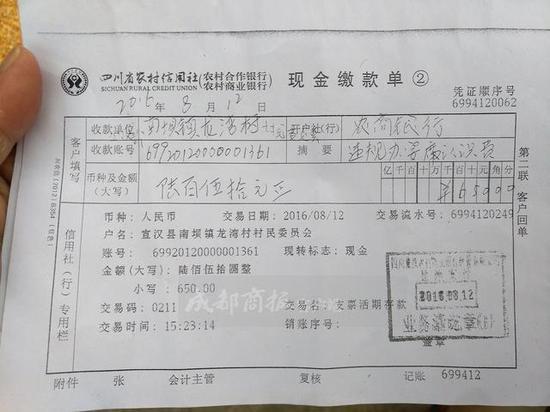 四川省农村信用社(农村合作银行)
(农村商业银行)
SICHUAN RURAL CREDIT UNION
现金缴款单②
凭证顺序号
6994120062
2016 年 8 月 12 日
收款单位 南坝镇龙湾村 开户社(行) 农商银行
收款账号 69920120000001361 摘要 违规办
币种及金额
(大写) 陆百伍拾元正
亿 千 百 十 万 千 百 十 元 角 分
¥65000
客户填写
第二联 客户回单
信用社(行)专用栏
币种:人民币 交易日期:2016/08/12 交易流水号:6994120249
户名:宣汉县南坝镇龙湾村村民委员会
账号:69920120000001361 现转标志:现金
金额(大写):陆佰伍拾圆整
小写:650.00
交易码:0211 交易名:支票活期存款
交易时间:15:23:14 销账序号:
成都商报
2016.08.12
业务清讫章
签章
附件 张 会计主管 复核 记账 699412